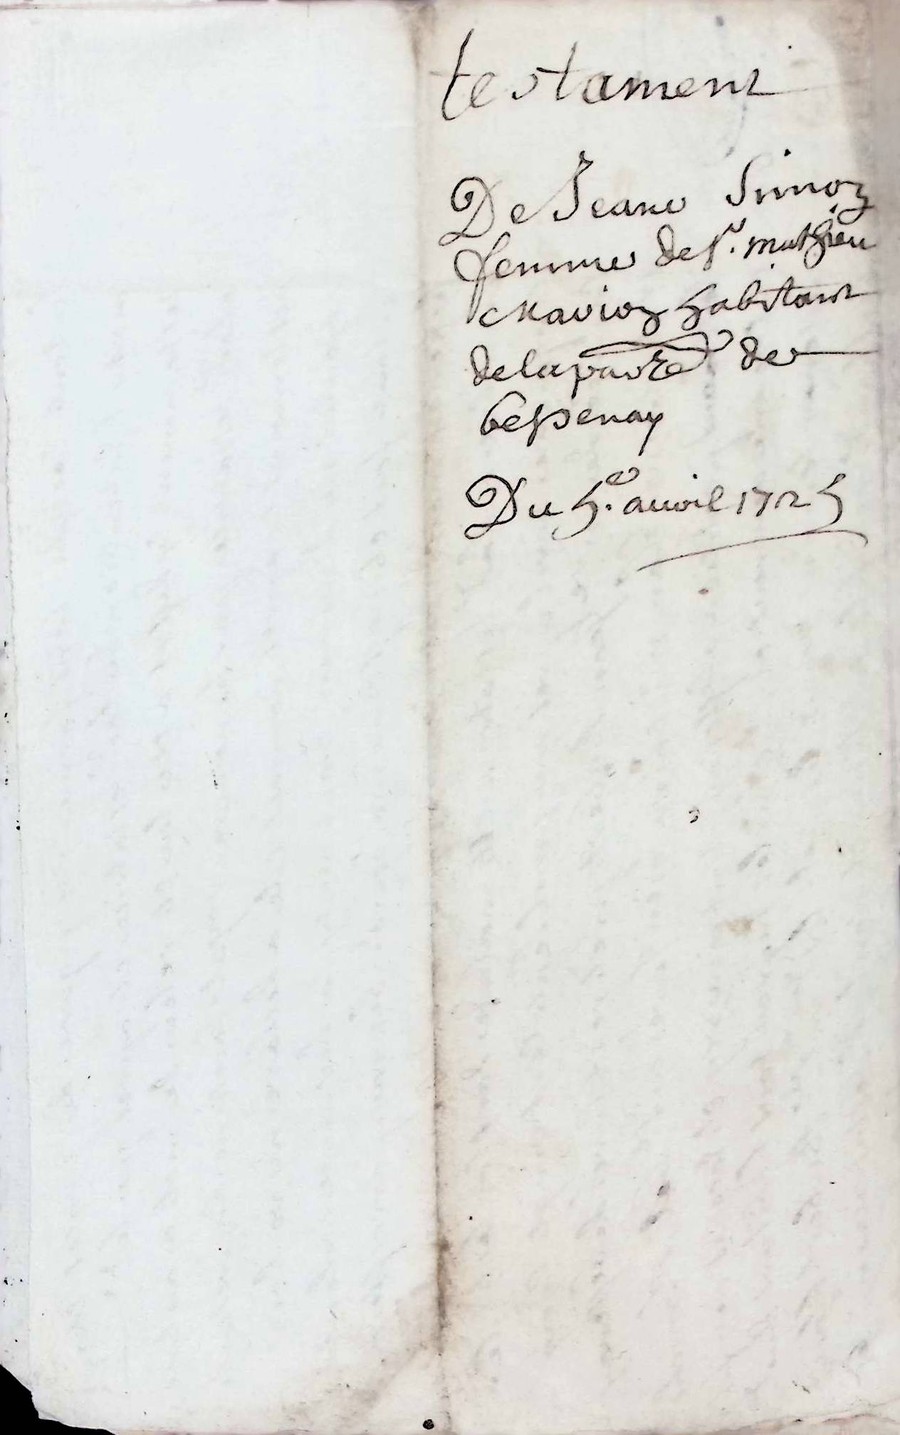 testament
De Jeane Simon
femme de sr. mathieu
habitant
de la paroîsse de
bessenay
Du 5.e avvril 1725